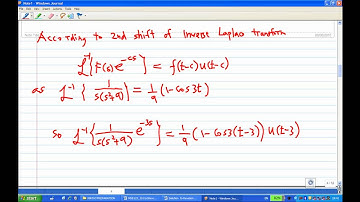 Note1 - Windows Journal
According to 2nd shift of Inverse Laplace transform
ℒ⁻¹{F(s)e^{-cs}} = f(t-c)u(t-c)
as ℒ⁻¹{1/(s(s²+9))} = 1/9 (1-cos3t)
so ℒ⁻¹{1/(s(s²+9)) e^{-3s}} = 1/9 (1-cos3(t-3)) u(t-3)
start